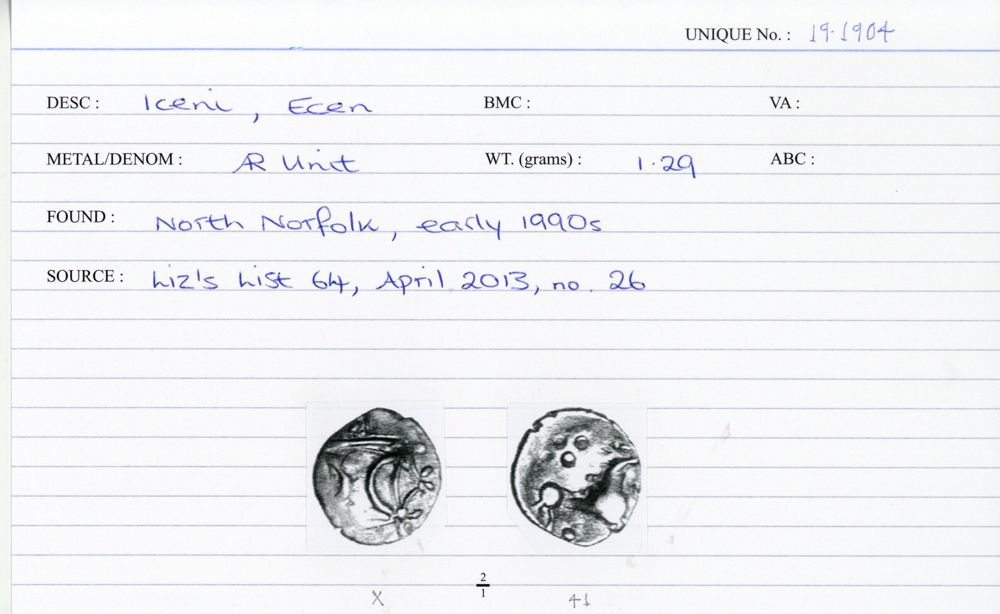 UNIQUE No. : 19.1904
DESC : Iceni, Ecen BMC : VA :
METAL/DENOM : AR Unit WT. (grams) : 1.29 ABC :
FOUND : North Norfolk, early 1990s
SOURCE : Liz's List 64, April 2013, no. 26
2
1
X 41